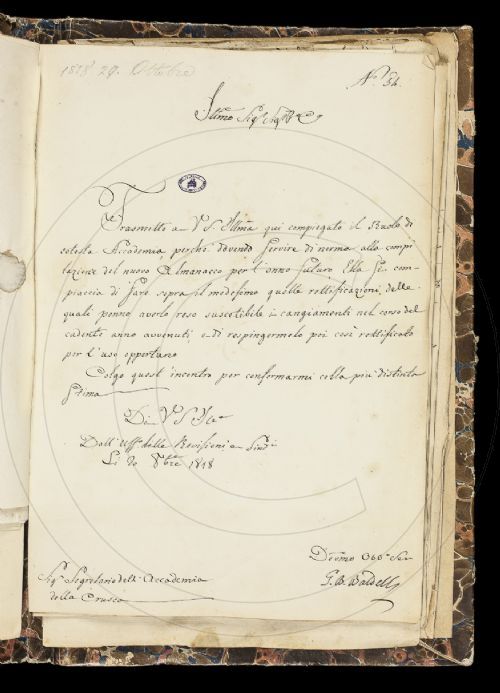 1818 29. Ottobre
N.º 54.
Illmo Sigr. Sigr.
Trasmetto a V S Illma qui compiegato il Ruolo di
cotesta Accademia, perché dovendo servire di norma alla compi
lazione del nuovo Almanacco per l'anno futuro Ella si com
piaccia di fare sopra il medesimo quelle rettificazioni, delle
quali ponno averlo reso suscettibile i cangiamenti nel corso del
cadente anno avvenuti e di respingermelo poi così rettificato
per l'uso opportuno
Colgo quest'incontro per confermarmi colla più distinta
stima
Di V S Illma
Dall'Uff. delle Revisioni e Sind.
Li 20 8bre 1818
Devmo Obbo Ser
G. B. Baldelli
Sigr. Segretario dell'Accademia
della Crusca